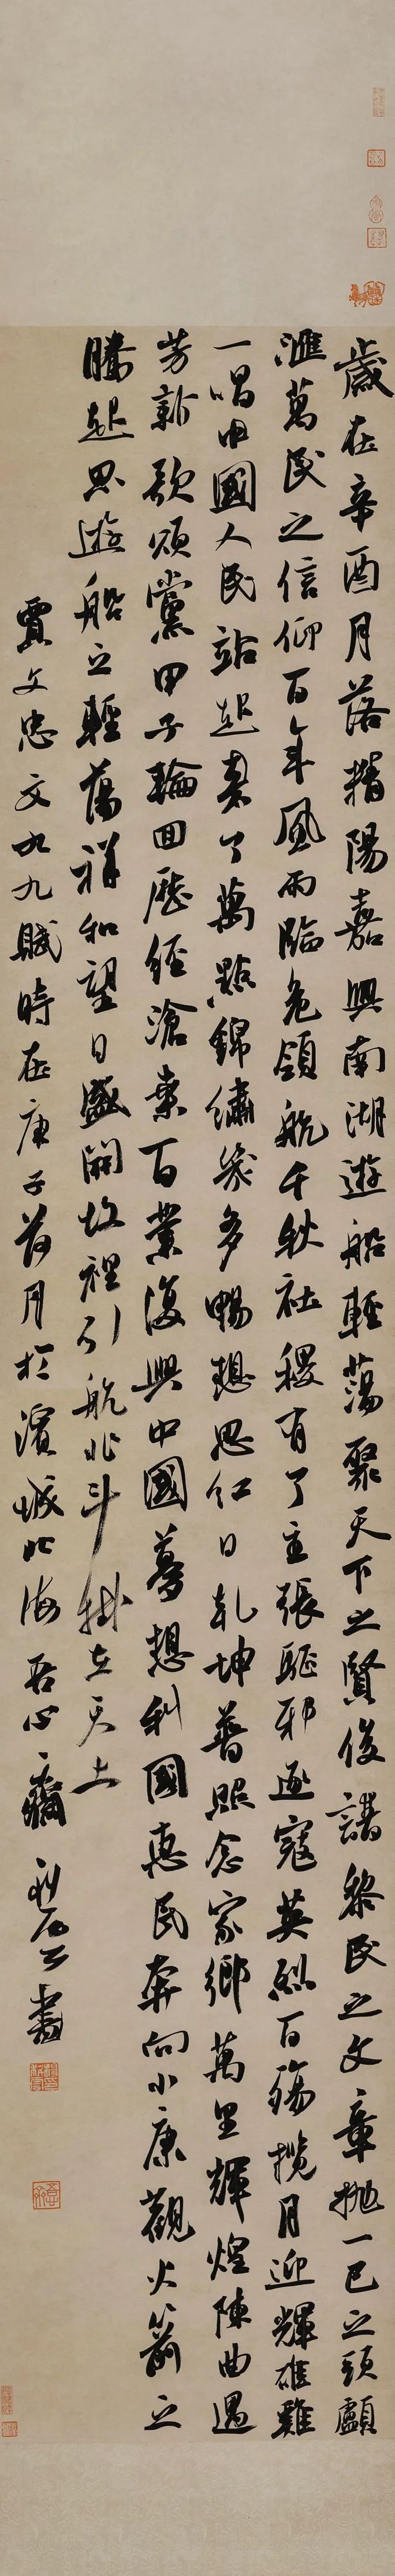 歲在辛酉月落楷陽嘉興南湖遊船輕蕩聚天下之賢俊譜黎民之文章拋一己之頭顱
滙萬民之信仰百年風雨臨危領航千秋社稷有了主張驅邪逐寇英烈百殤攬月迎輝雄雞
一唱中國人民站起來了萬點錦繡幾多暢想思紅日乾坤普照念家鄉萬里輝煌陳曲遇
芳新歌頌黨甲子輪回歷經滄桑百業復興中國夢想利國惠民奔向小康觀火箭之
騰起思遊船之輕蕩祥和望日盛開故裡引航北斗掛在天上
賈文忠文九九賦時在庚子荷月於濱城北海吾心齋 書